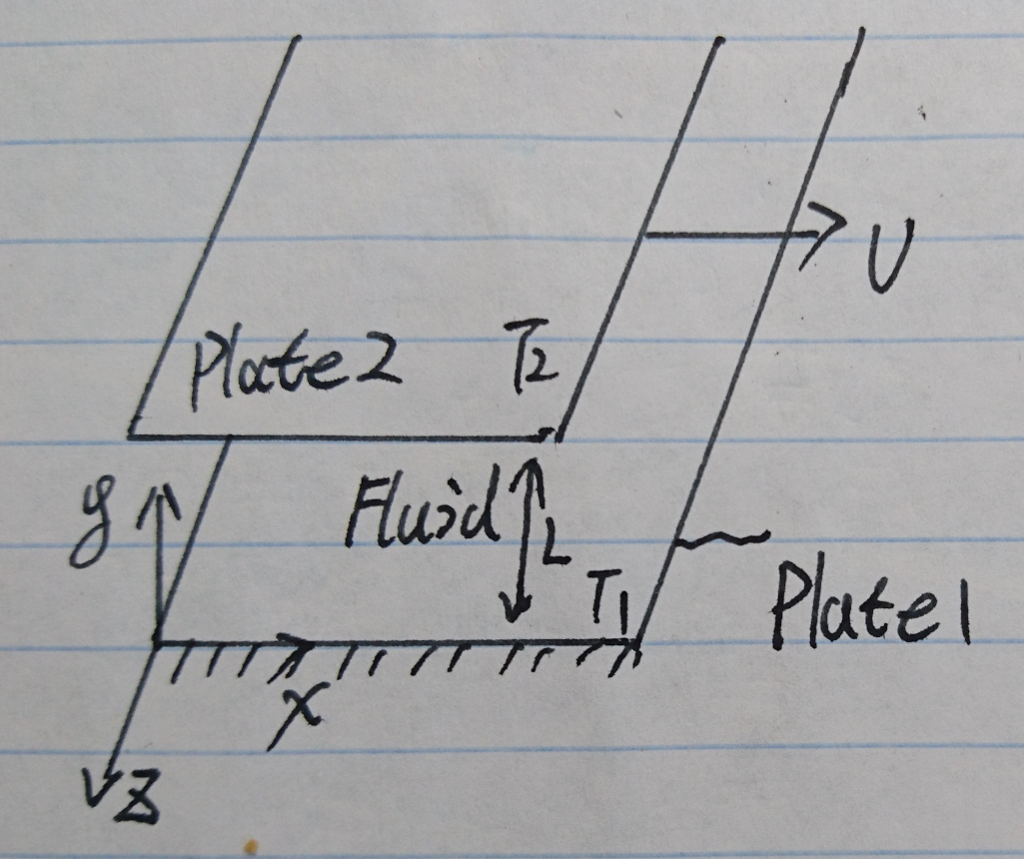 U
Plate2 T2
y
Fluid
L
T1
Plate1
x
z